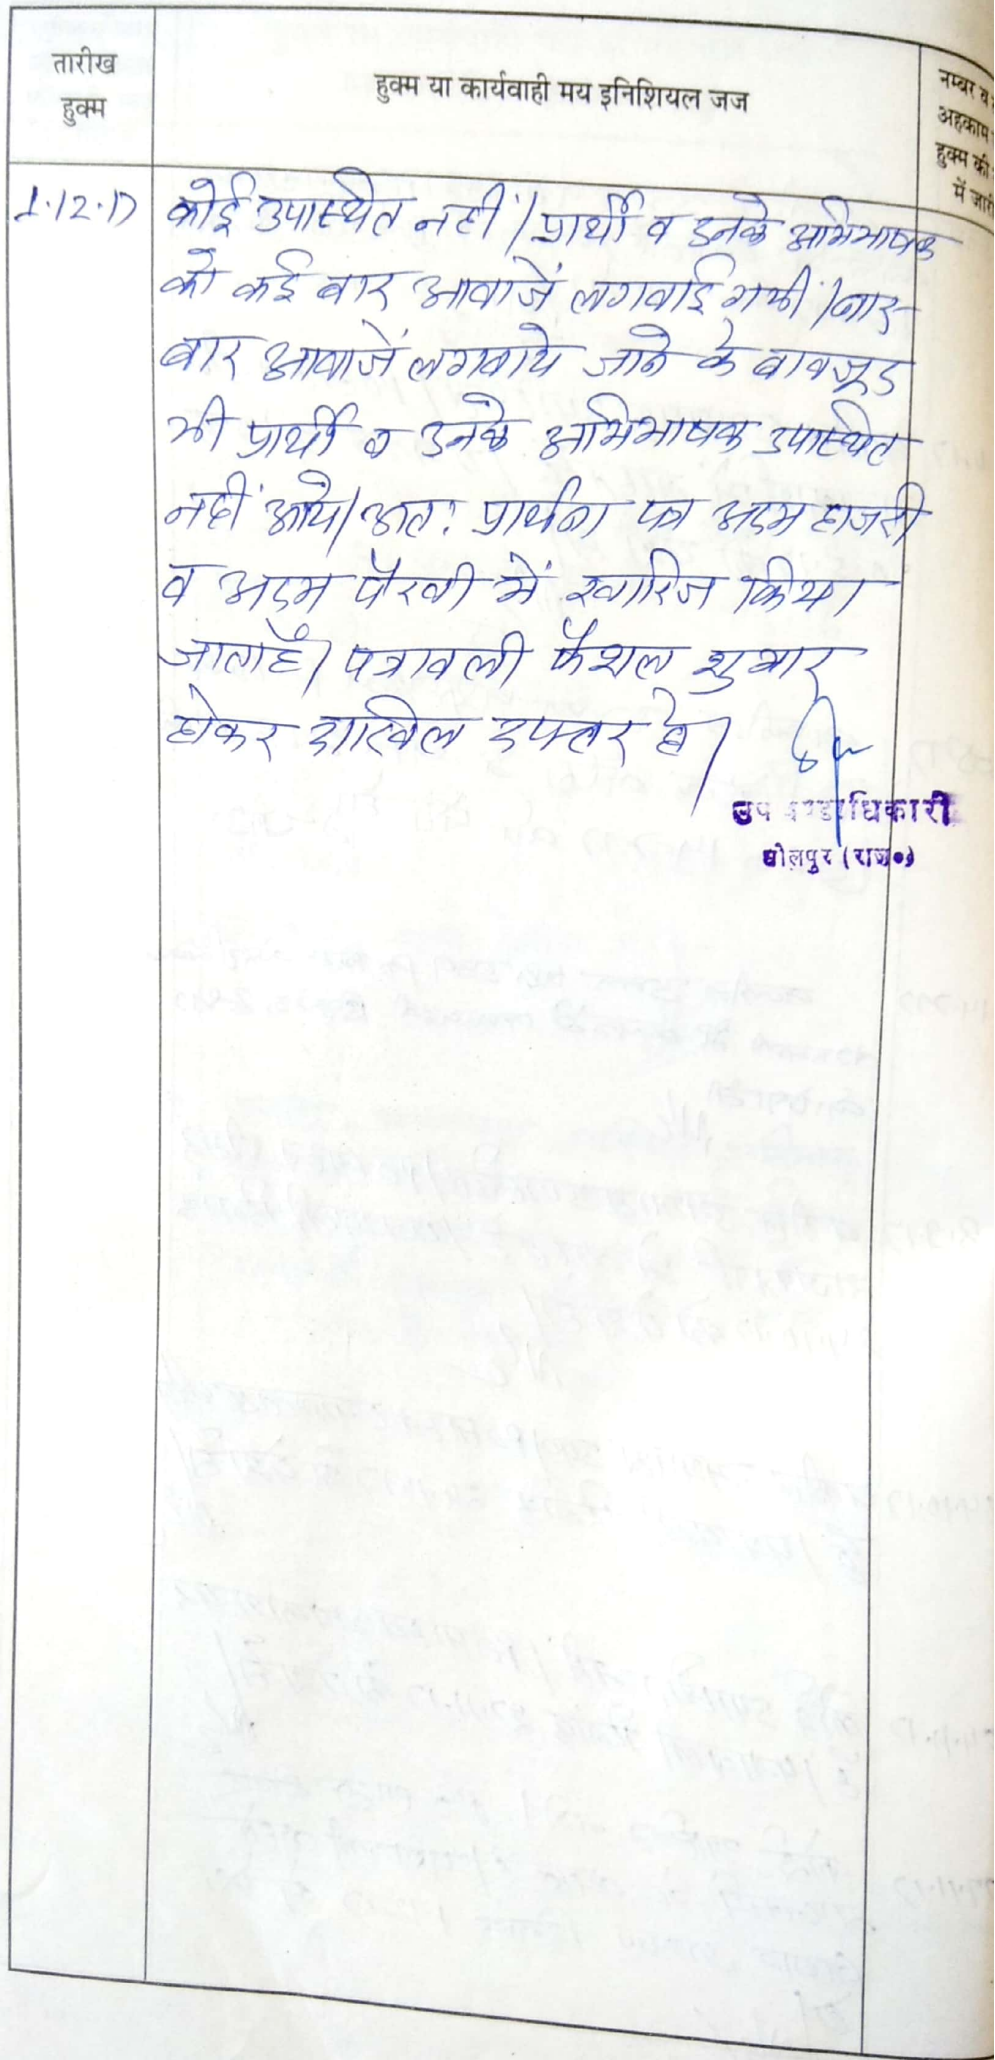 तारीख
हुक्म
हुक्म या कार्यवाही मय इनिशियल जज
नम्बर व
अहकाम
हुक्म की
में जारी
1.12.17
कोई उपस्थित नहीं। प्रार्थी व उनके अभिभाषक
को कई बार आवाजें लगवाई गयीं। बार-
बार आवाजें लगवाये जाने के बावजूद
भी प्रार्थी व उनके अभिभाषक उपस्थित
नहीं आये। अतः प्रार्थना पत्र अदम हाजरी
व अदम पैरवी में खारिज किया
जाता है। पत्रावली फैशल शुमार
होकर दाखिल दफ्तर हो।
उप खण्डाधिकारी
धोलपुर (राज०)